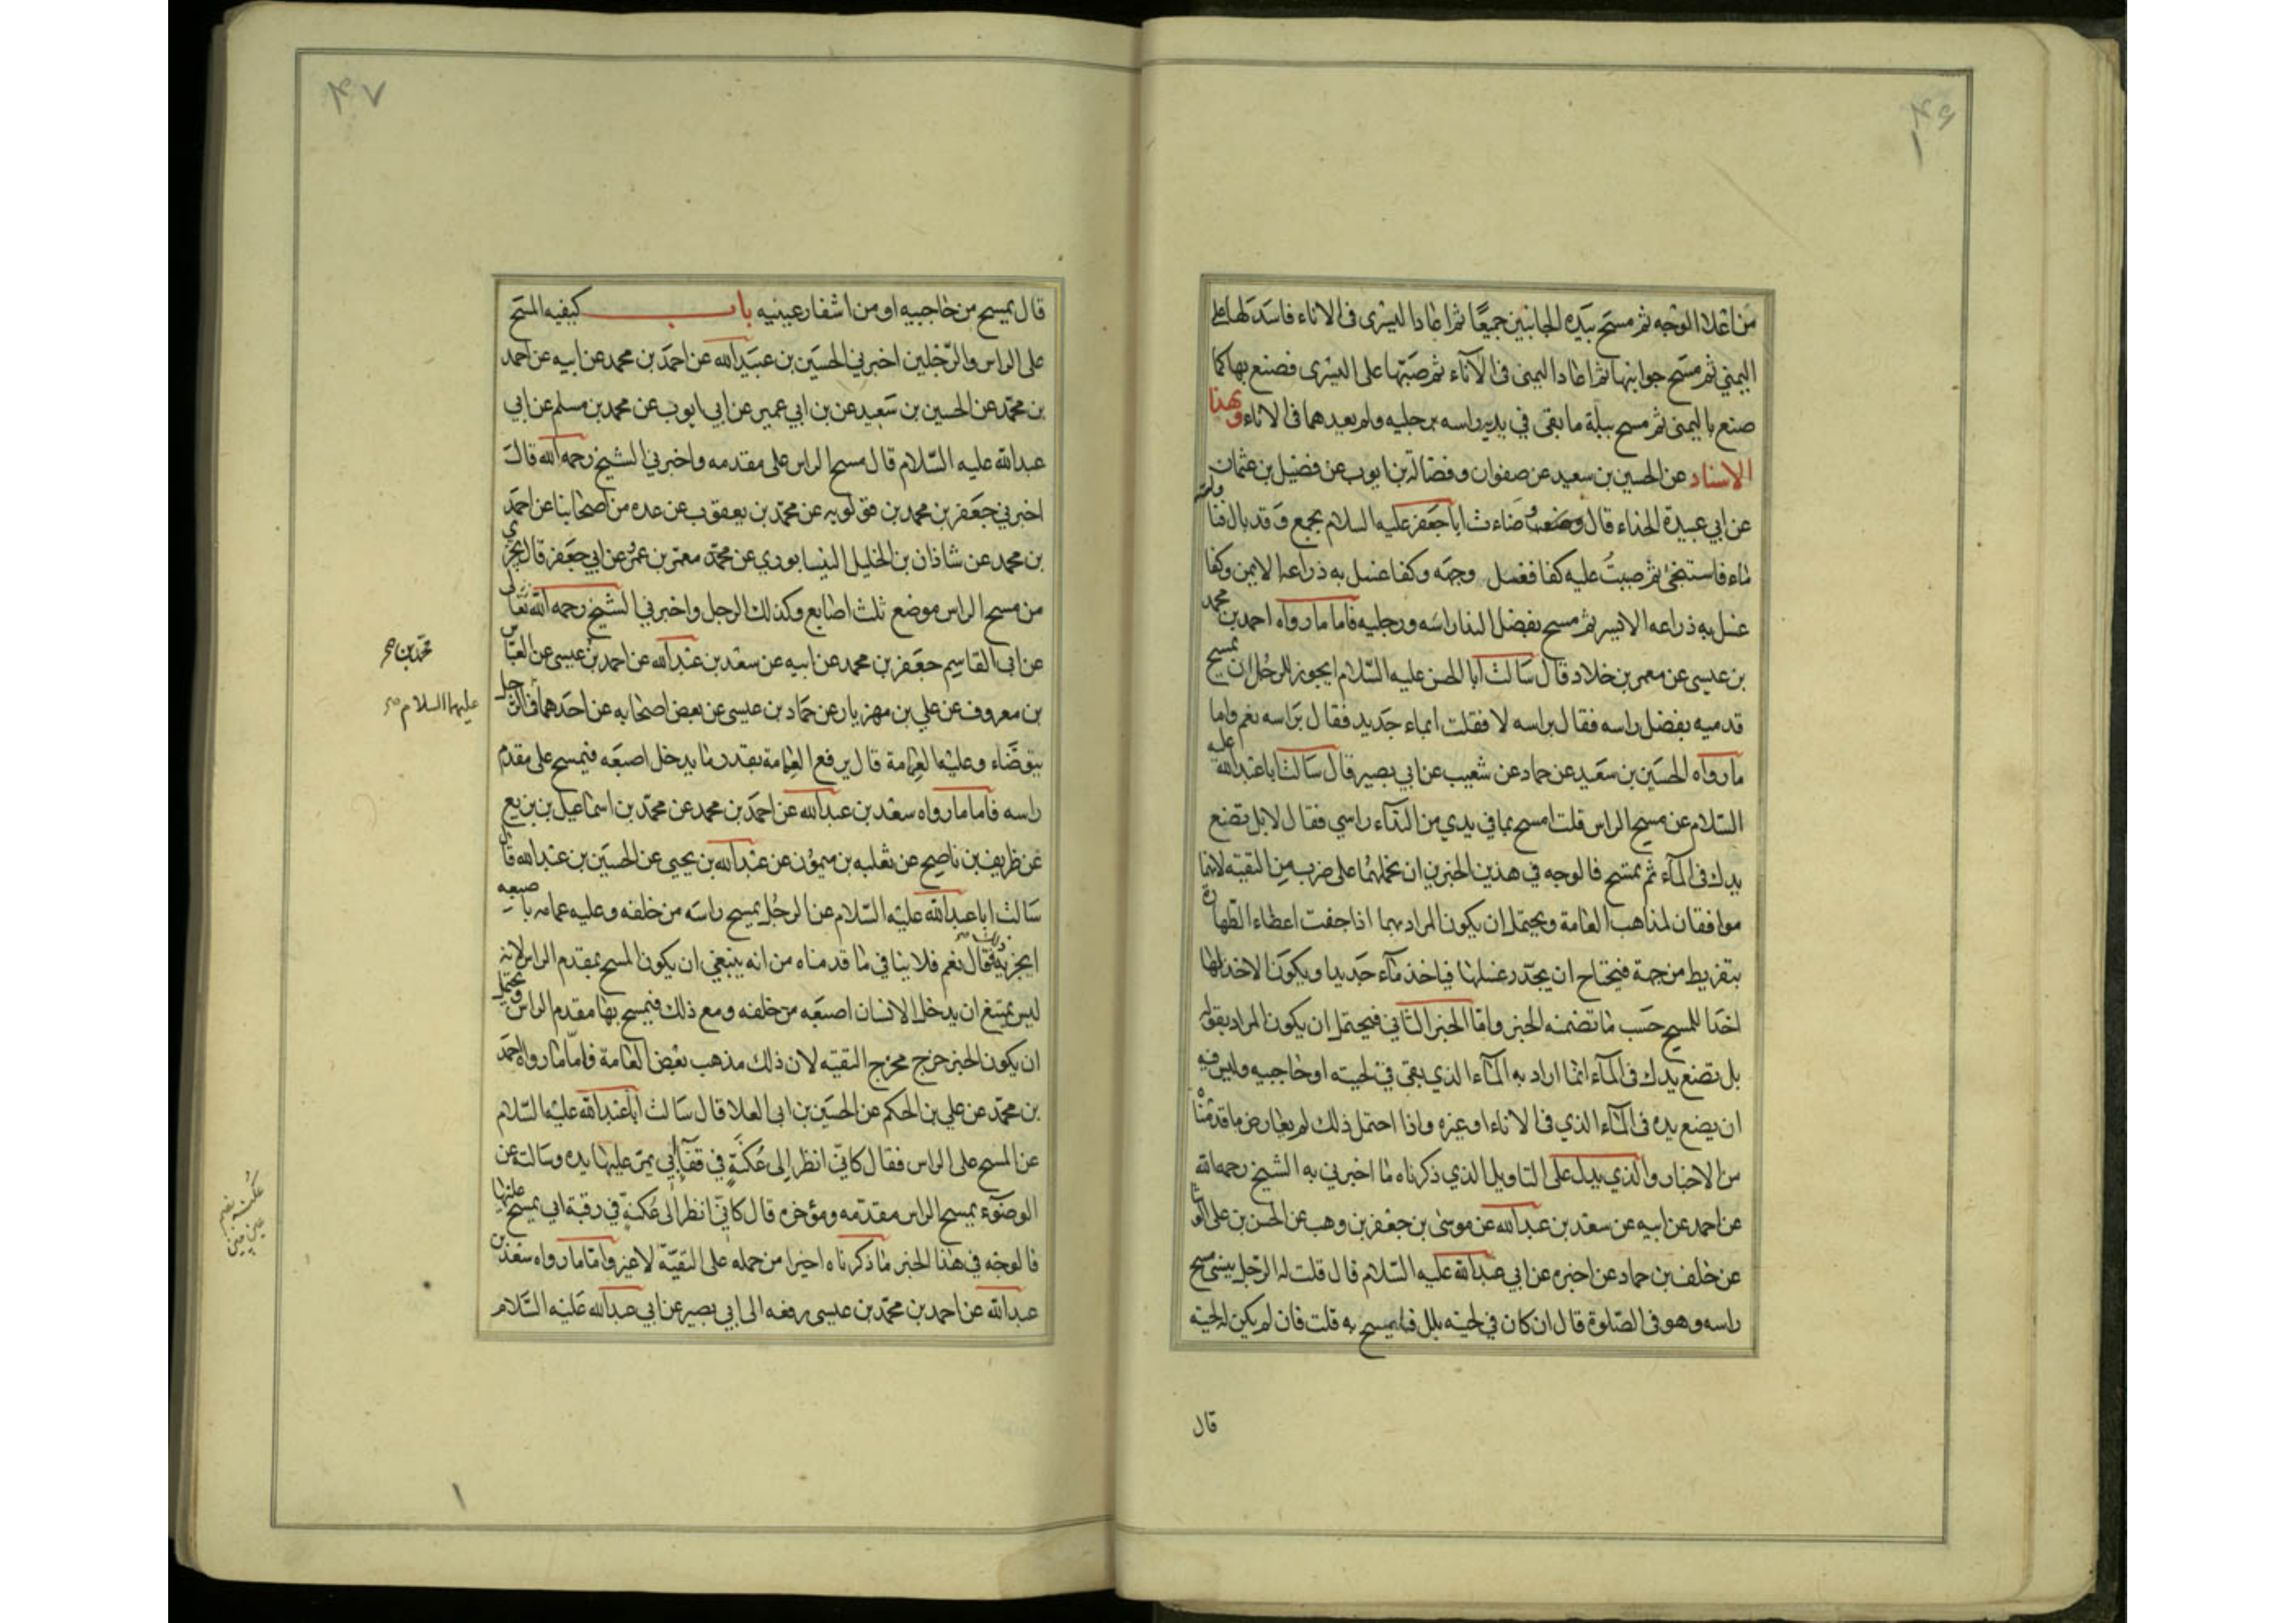 ٤٦
من اعلا الوجه ثم مسح بيده الجانبين جميعًا ثم اعادا اليسرى فى الاناء فاسدلها على
اليمنى ثم مسح جوانبها ثم اعادا اليمنى فى الآناء ثم صبّها على اليسرى فصنع بها كما
صنع باليمنى ثم مسح ببلة ما بقى في يديه راسه ورجليه ولم يعدهما فى الاناء وبهذا
الاسناد عن الحسين بن سعيد عن صفوان وفضالة بن ايوب عن فضيل بن عثمان
عن ابي عبيدة الحذاء قال وضاءت ابا جعفر عليه السلام بجمع وقد بال فناولته
ماء فاستنجى ثم صببتُ عليه كفا فغسل وجهه وكفا غسل به ذراعه الايمن وكفا
غسل به ذراعه الايسر ثم مسح بفضل الندا راسَه ورجليه فاما ما رواه احمد بن محمد
بن عيسى عن معمر بن خلاد قال سَالت ابا الحسن عليه السّلام ايجوز للرجُل ان يمسح
قدميه بفضل راسه فقال براسه لا فقلت ابماء جَديد فقال برَاسه نعم واما
ما رواه الحسَين بن سعَيد عن حماد عن شعيب عن ابي بصير قال سَالت ابا عبد الله عليه
السّلام عن مسح الراس قلت امسح بما في يدي من النّدَاء راسي فقال لا بل تضع
يدك فى المآء ثم تمسّح فالوجه في هذين الخبرين ان نحملهُما على ضرب من التقيّة لانهما
موافقان لمذاهب العامة ويحتمل ان يكون المراد بهما اذا جفت اعضاء الطّهارة
بتفريط من جهة فيحتاج ان يجدّد غسلها فياخذ مآء جَديدا ويكوَن الاخذ لها
اخذا للمسح حَسَب مَا تضمنه الخبر وامّا الخبر الثّاني فيحتمل ان يكون المراد بقوله
بل تضع يدك فى المآء انّما اراد به المآء الذي بقى في لحيته او حَاجبيه وليس فيه
ان يضع يده فى المآء الذي فى الاناء او غيره واذا احتمل ذلك لم يعارض ما قدّمْناه
من الاخبار والذي يدل على التاويل الذي ذكرناه مَا اخبرني به الشيخ رحمه الله
عن احمد عن ابيه عن سعَد بن عبد الله عن موسَى بن جعفر بن وهب عن الحسن بن على الوشا
عن خلف بن حماد عن اخبره عن ابي عبد الله عليه السّلام قال قلت له الرّجل ينسى مسح
راسه وهو فى الصّلوة قال ان كان في لحيته بلل فليمسح به قلت فان لم يكن له لحية
قال
٤٧
قال يمسح من حاجبيه او من اشفار عينيه باب كيفيه المسَح
على الراس والرّجلين اخبرني الحسَين بن عبَيد الله عن احمَد بن محمد عن ابيه عن احمد
بن محمّد عن الحسين بن سَعيد عن بن ابي عمير عن ابى ايوب عن محمد بن مسلم عن ابي
عبد الله عليه السّلام قال مسح الراس على مقدمه واخبرني الشيخ رحمه الله قال
اخبرني جعَفر بن محمد بن قولويه عن محمّد بن يعقوب عن عده من اصحابنا عن احمَد
بن محمد عن شاذان بن الخليل النيسابوري عن محمّد معمّر بن عمُر عن ابي جعَفر قال يجزي
من مسح الراس موضع ثلث اصابع وكذلك الرجل واخبرني الشيخ رحمه الله تعالى
عن ابى القاسِم جعَفر بن محمد عن ابيه عن سعَد بن عَبدالله عن احمد بن عيسى عن العبّاس
محمّد بن صح
بن معروف عن علي بن مهزيار عن حمّاد بن عيسى عن بعض اصحَابه عن احدَهما في الرجل
عليهما السلام صح
يتوضّاء وعليْه العِمامة قال يرفع العِمامة بقدر مَا يدخل اصبعَه فيمسح على مقدم
راسه فاما ما رواه سعَد بن عبدالله عن احمَد بن محمد عن محمّد بن اسْماعيل بن بزيع
عن ظريف بن ناصح عن ثعلبه بن ميموُن عن عبدالله بن يحيى عن الحسَين بن عبَدالله قال
سَالت ابا عبدالله عليْه السّلام عن الرجُل يمسح راسَه من خلفه وعليه عمامه باصبعه
ايجزيه ذلك فقال نعَم فلا ينافي مَا قدمناه من انه ينبغي ان يكون المسح بمقدم الراس لانه
ليس يمتنع ان يدخل الانسان اصبعَه من خلفه ومع ذلك فيمسح بها مقدم الراس ويحتمل
ان يكون الخبر خرج مخرج التقيّه لان ذلك مذهب بعَض العَامة فامّا مَا رواه احمَد
بن محمّد عن علي بن الحكم عن الحسَين بن ابى العلا قال سَالت اباعَبدالله عليْه السّلام
عن المسَح على الراس فقال كانّي انظر اِلى عُكنَةٍ في قفَآء ابي يمرّ عليهَا يده وسَالته عن
الوضوَء يمسح الراس مقدّمه ومؤخره قال كانّي انظر الى عُكنةٍ في رقبة ابي يمسح عليْها
عكنه بضم عين چين
فالوجَه في هذا الخبر مَا ذكرناه اخيرا من حمله على التقيّة لاغير وامّا ما رواه سَعَد بن
عبدالله عن احمد بن محمّد بن عيسى رفعه الى ابي بصير عن ابي عبدالله عَليْه السَّلام